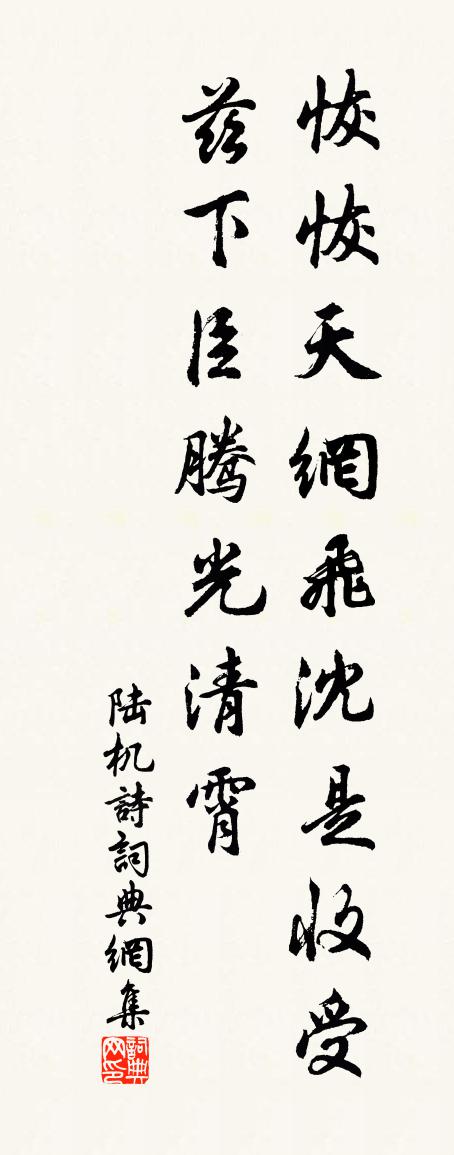 恢恢天網飛沈是收受
茲下臣騰光清霄
陆机詩詞典網集
詞典网印